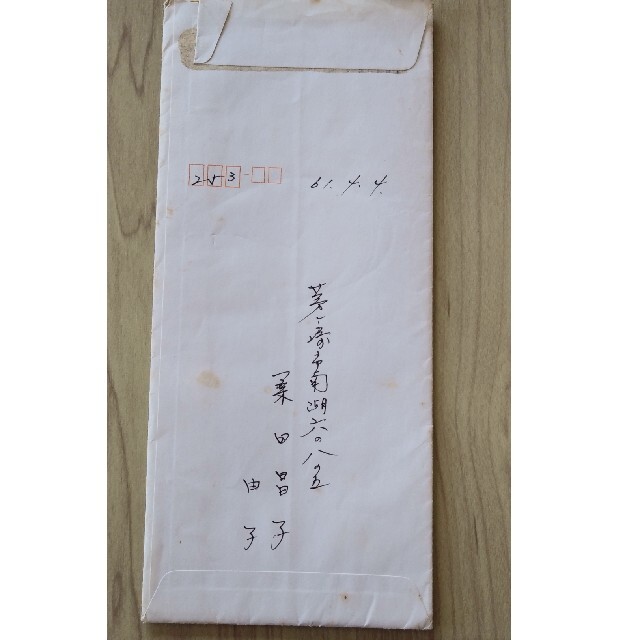 253-
61.4.4.
茅ヶ崎市南湖六の八の五
栗田昌子
由子